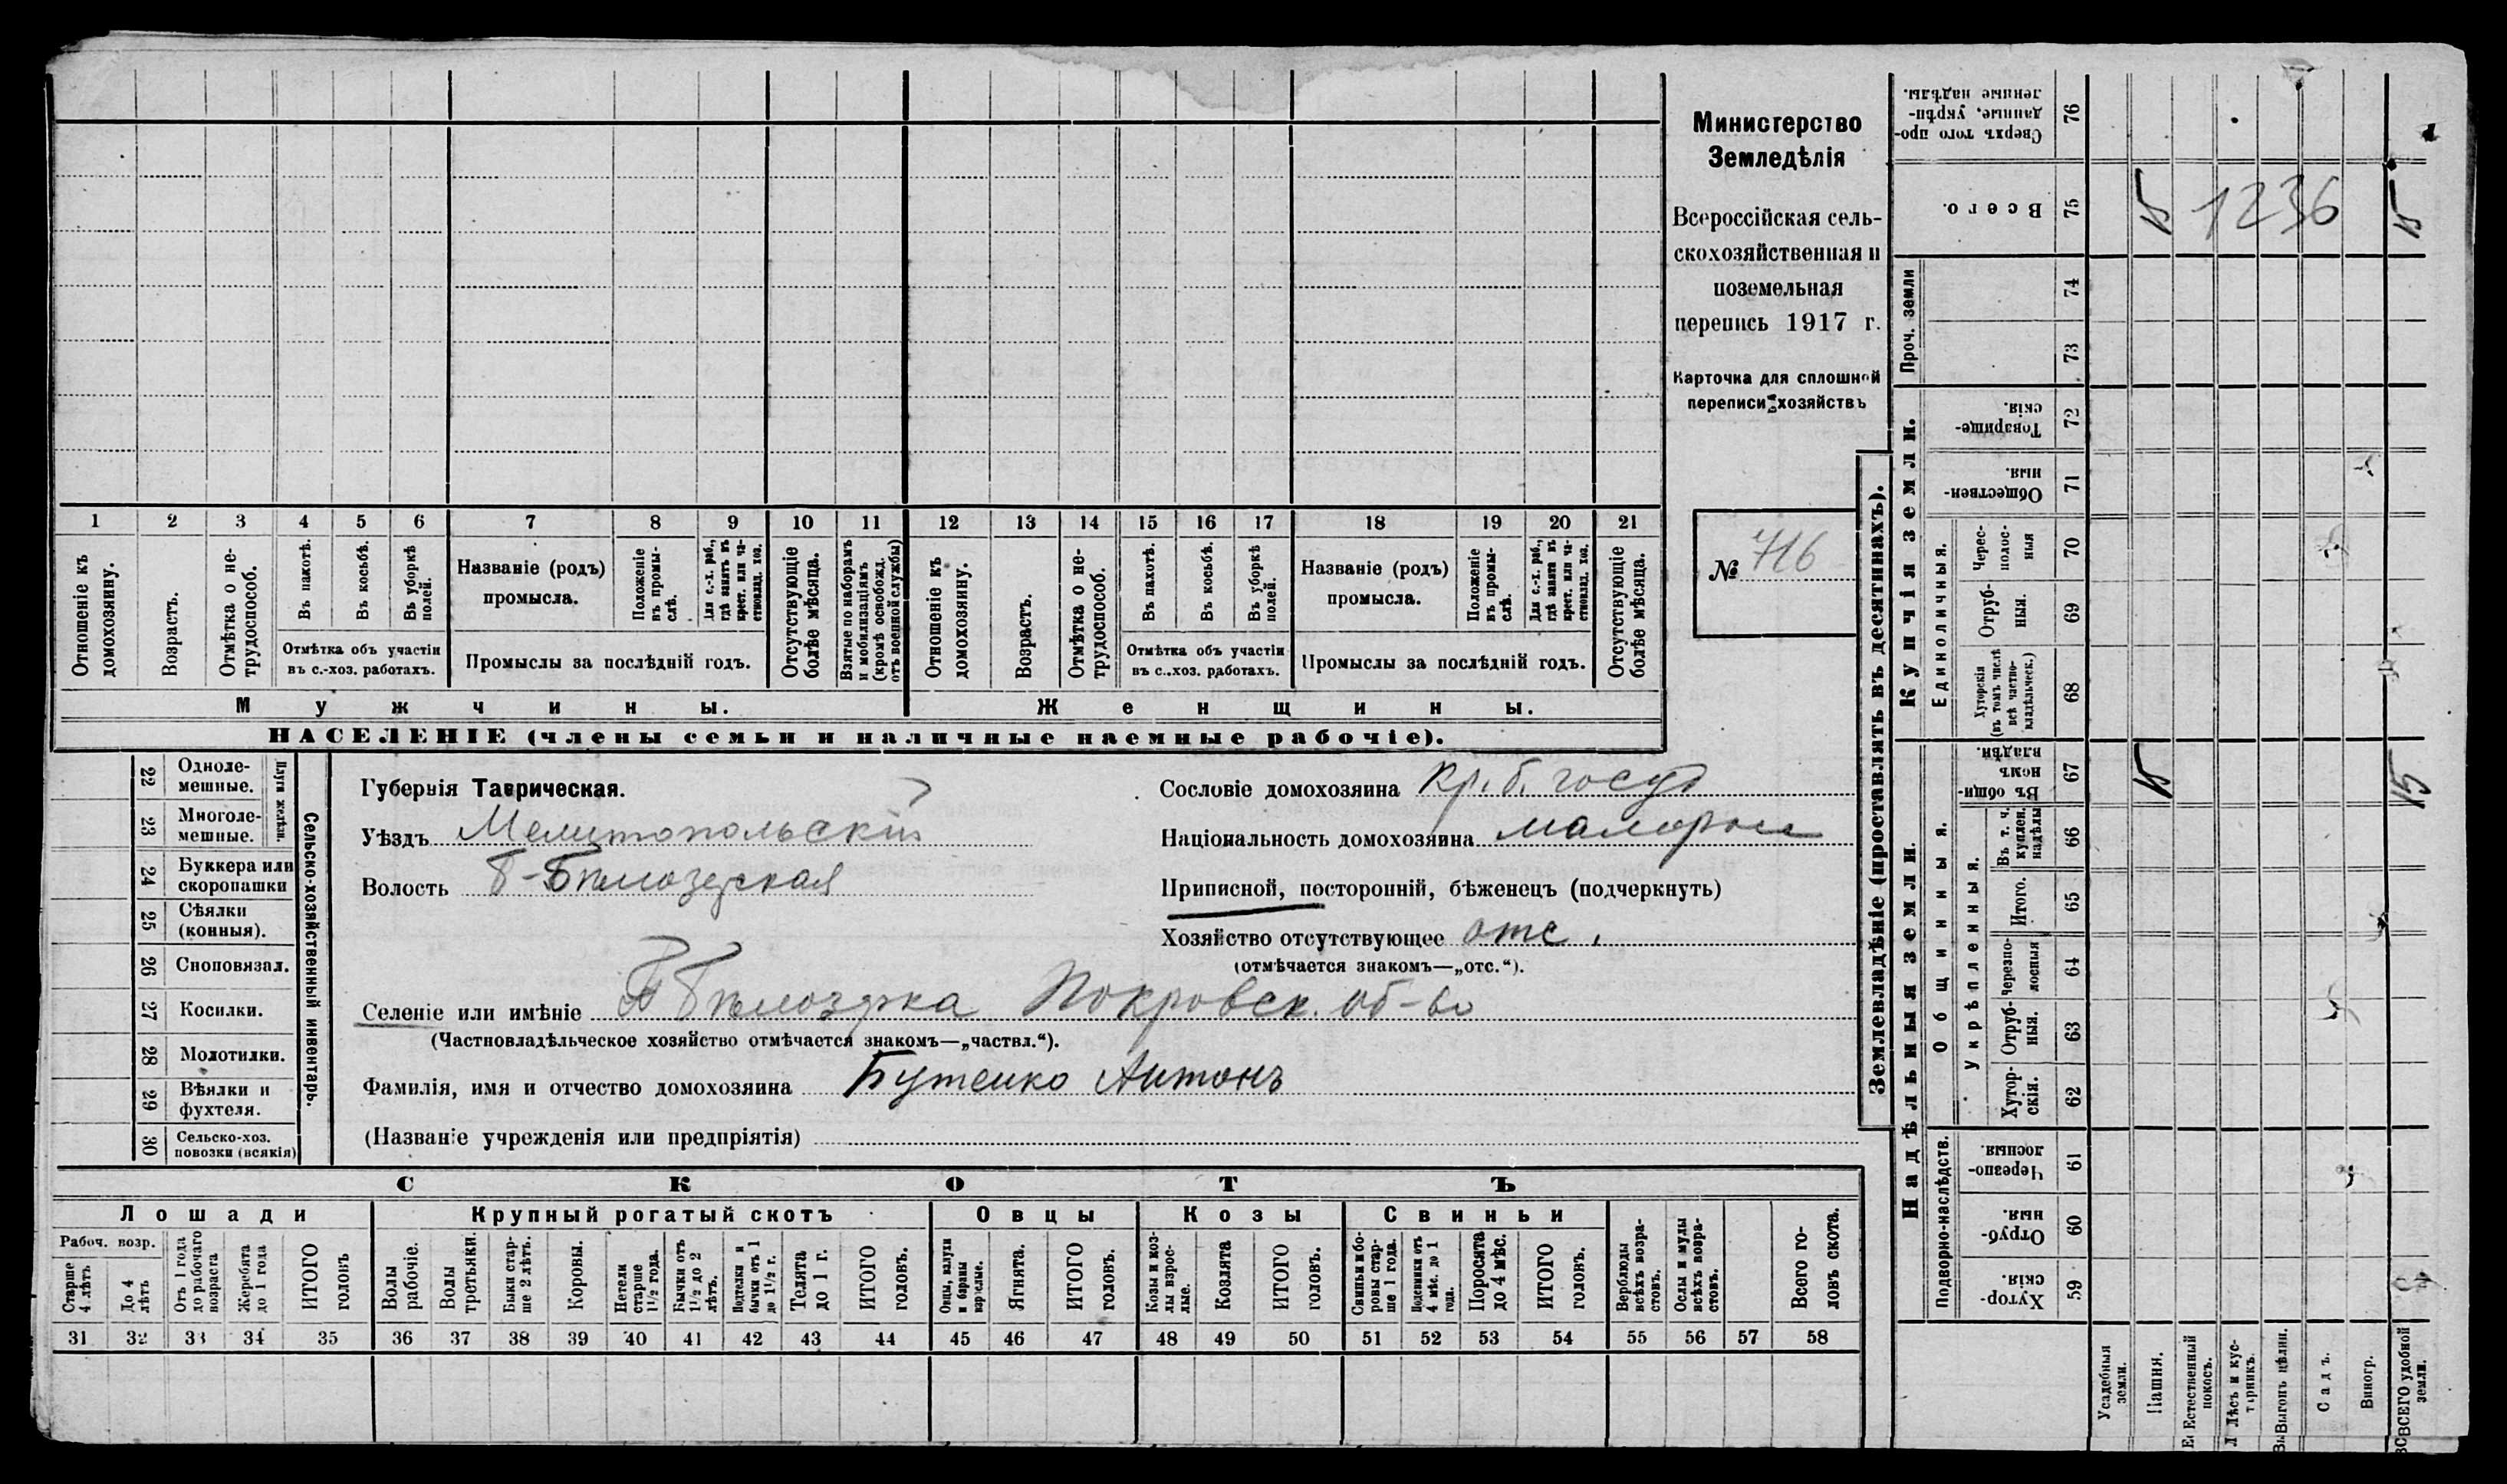 Министерство
Земледѣлія
Всероссійская сель-
скохозяйственная и
поземельная
перепись 1917 г.
Карточка для сплошной
переписи хозяйствъ
№ 716
1 2 3 4 5 6 7 8 9 10 11 12 13 14 15 16 17 18 19 20 21
Отношеніе къ домохозяину.
Возрастъ.
Отмѣтка о не-трудоспособ.
Въ пахотѣ.
Въ косьбѣ.
Въ уборкѣ полей.
Отмѣтка объ участіи
въ с.-хоз. работахъ.
Названіе (родъ)
промысла.
Положеніе въ промы-слѣ.
Для с.-х. раб., гдѣ занятъ въ крест. или ча-стновлад. хоз.
Промыслы за послѣдній годъ.
Отсутствующіе болѣе мѣсяца.
Взятые по наборамъ и мобилизаціямъ (кромѣ освобожд. отъ военной службы)
Отношеніе къ домохозяину.
Возрастъ.
Отмѣтка о не-трудоспособ.
Въ пахотѣ.
Въ косьбѣ.
Въ уборкѣ полей.
Отмѣтка объ участіи
въ с.-хоз. работахъ.
Названіе (родъ)
промысла.
Положеніе въ промы-слѣ.
Для с.-х. раб., гдѣ занята въ крест. или ча-стновлад. хоз.
Промыслы за послѣдній годъ.
Отсутствующіе болѣе мѣсяца.
Мужчины.
Женщины.
НАСЕЛЕНІЕ (члены семьи и наличные наемные рабочіе).
22 Одноле-мешные.
23 Многоле-мешные.
Плуги желѣзн.
24 Буккера или скоропашки
25 Сѣялки (конныя).
26 Сноповязал.
27 Косилки.
28 Молотилки.
29 Вѣялки и фухтеля.
30 Сельско-хоз. повозки (всякія)
Сельско-хозяйственный инвентарь.
Губернія Таврическая.
Уѣздъ Мелитопольскій
Волость Б-Бѣлозерская
Сословіе домохозяина кр. б. госуд
Національность домохозяина малорос
Приписной, посторонній, бѣженецъ (подчеркнуть)
Хозяйство отсутствующее отс.
(отмѣчается знакомъ—„отс.“).
Селеніе или имѣніе Б Бѣлозерка Покровск. об-во
(Частновладѣльческое хозяйство отмѣчается знакомъ—„частвл.“).
Фамилія, имя и отчество домохозяина Бутенко Антонъ
(Названіе учрежденія или предпріятія)
СКОТЪ
Лошади
Крупный рогатый скотъ
Овцы
Козы
Свиньи
Рабоч. возр.
Старше 4 лѣтъ
До 4 лѣтъ
Отъ 1 года до рабочаго возраста
Жеребята до 1 года
ИТОГО головъ
Волы рабочіе.
Волы третьяки.
Быки стар-ше 2 лѣтъ.
Коровы.
Нетели старше 1½ года.
Бычки отъ 1½ до 2 лѣтъ.
Подтелки и бычки отъ 1 до 1½ г.
Телята до 1 г.
ИТОГО головъ.
Овцы, валухи и бараны взрослые.
Ягнята.
ИТОГО головъ.
Козы и коз-лы взрос-лые.
Козлята
ИТОГО головъ.
Свиньи и бо-ровы стар-ше 1 года.
Подсвинки отъ 4 мѣс. до 1 года.
Поросята до 4 мѣс.
ИТОГО головъ.
Верблюды всѣхъ возра-стовъ.
Ослы и мулы всѣхъ возра-стовъ.
Всего го-ловъ скота.
31 32 33 34 35 36 37 38 39 40 41 42 43 44 45 46 47 48 49 50 51 52 53 54 55 56 57 58
Землевладѣніе (проставлять въ десятинахъ).
Надѣльныя земли.
Купчія земли.
Проч. земли
Сверхъ того про-данные, укрѣп-ленные надѣлы. 76
Всего. 75
1236
74
73
Товарище-скія. 72
Обществен-ныя. 71
Единоличныя.
Черес-полос-ныя 70
Отруб-ныя. 69
Хуторскія (въ томъ числѣ всѣ частно-владѣльческ.) 68
Общинныя.
Въ общин-номъ владѣн. 67
Укрѣпленныя.
Въ т. ч. куплен. надѣлы 66
Итого. 65
Черезпо-лосныя 64
Отруб-ныя. 63
Хутор-скія. 62
Подворно-наслѣдств.
Черезпо-лосныя. 61
Отруб-ныя. 60
Хутор-скія. 59
Усадебныя земли.
Пашня.
Естественный покосъ.
Лѣсъ и кус-тарникъ.
Выгонъ цѣлин.
Садъ.
Виногр.
ВСЕГО удобной земли.